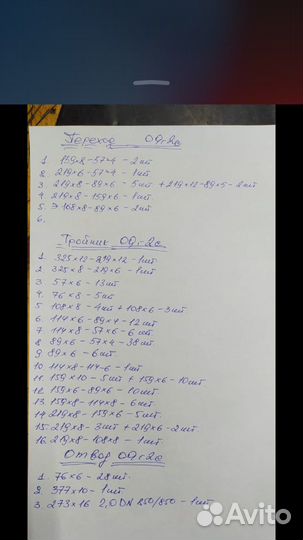 Переход 09г2с
1. 159х8-57х4 - 2шт
2. 219х6-57х4 - 1шт
3. 219х8-89х6 - 5шт + 219х12-89х5 - 2шт
4. 219х8-159х6 - 1шт
5. Э 108х8-89х6 - 2шт
6.
Тройник 09г2с
1. 325х12-219х12 - 1шт
2. 325х8-219х6 - 1шт
3. 57х6 - 13шт
4. 76х8 - 5шт
5. 108х8 - 4шт + 108х6 - 3шт
6. 114х6-89х4 - 12шт
7. 114х8-57х6 - 6шт
8. 89х6-57х4 - 38шт
9. 89х6 - 6шт
10. 114х8-114-6 - 1шт
11. 159х10 - 5шт + 159х6 - 10шт
12. 159х6-89х6 - 10шт
13. 159х8-114х8 - 6шт
14. 219х8-159х6 - 5шт
15. 219х8 - 3шт + 219х6 - 2шт
16. 219х8-108х8 - 1шт
Отвод 09г2с
1. 76х6 - 28шт
2. 377х10 - 1шт
3. 273х16 2,0DN 250/850 - 1шт
Avito